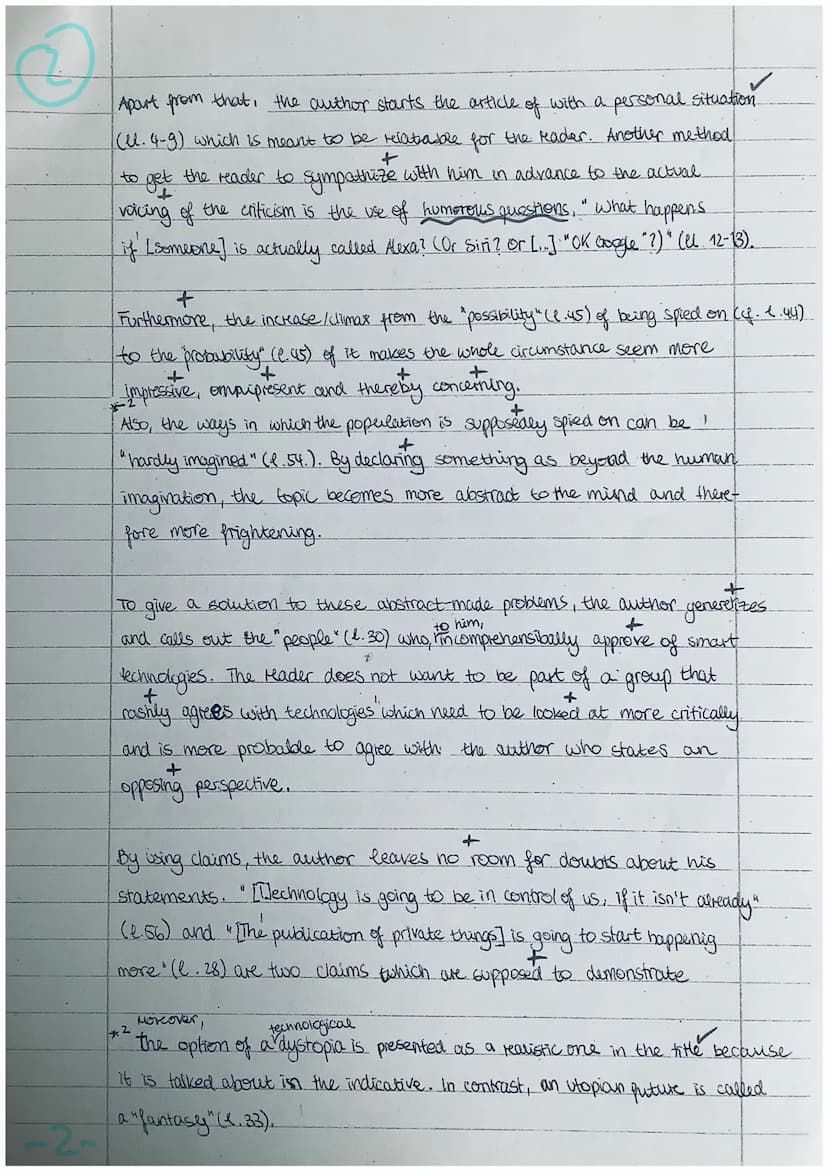 2
Apart from that, the author starts the article of with a personal situation
(ll. 4-9) which is meant to be relatable for the reader. Another method
to get the reader to sympathize with him in advance to the actual
voicing of the criticism is the use of humorous questions, "What happens
if [someone] is actually called Alexa? (Or Siri? Or [..] "OK Google"?)" (ll. 12-13).
Furthermore, the increase/climax from the "possibility" (l.45) of being spied on (cf. l.44)
to the "probability" (l.45) of it makes the whole circumstance seem more
impressive, omnipresent and thereby concerning.
*2
Also, the ways in which the population is supposedly spied on can be
"hardly imagined" (l.54.). By declaring something as beyond the human
imagination, the topic becomes more abstract to the mind and there-
fore more frightening.
To give a solution to these abstract-made problems, the author generelizes
and calls out the "people" (l.30) who, to him, incomprehensibally approve of smart
technologies. The reader does not want to be part of a group that
rashly agrees with technologies which need to be looked at more critically
and is more probable to agree with the author who states an
opposing perspective.
By using claims, the author leaves no room for doubts about his
statements. "[T]echnology is going to be in control of us, if it isn't already"
(l.56) and "[The publication of private things] is going to start happenig
more" (l.28) are two claims which are supposed to demonstrate
*2 Moreover,
the option of a technological dystopia is presented as a realistic one in the title because
it is talked about in the indicative. In contrast, an utopian future is called
a "fantasy" (l.33).
-2-